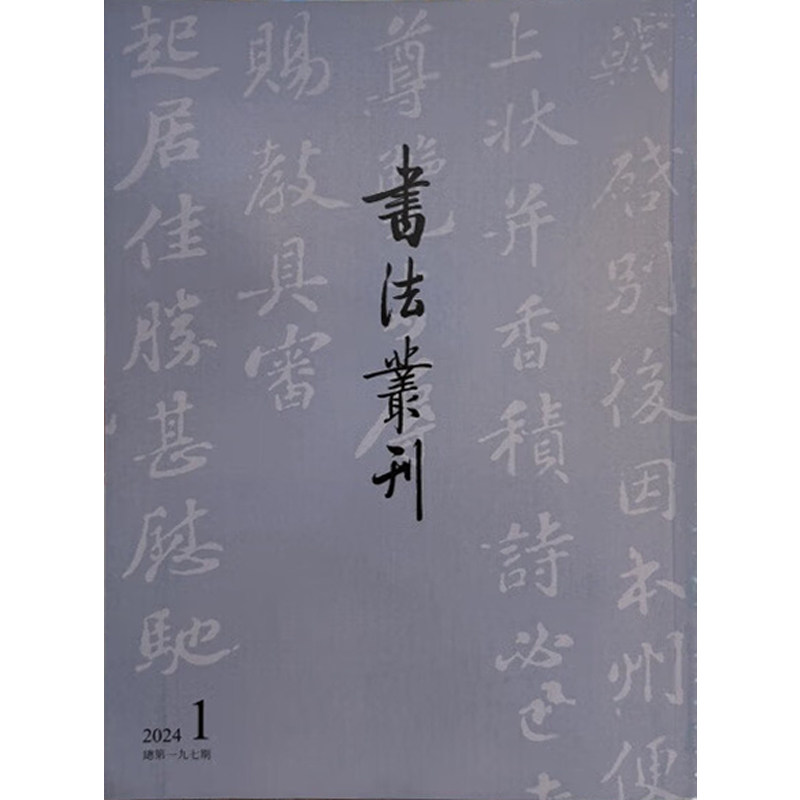 書法叢刊
軾啓別後因本州便
上狀并香積詩必已
尊覽
賜教具審
起居佳勝甚慰馳
2024 1
總第一九七期